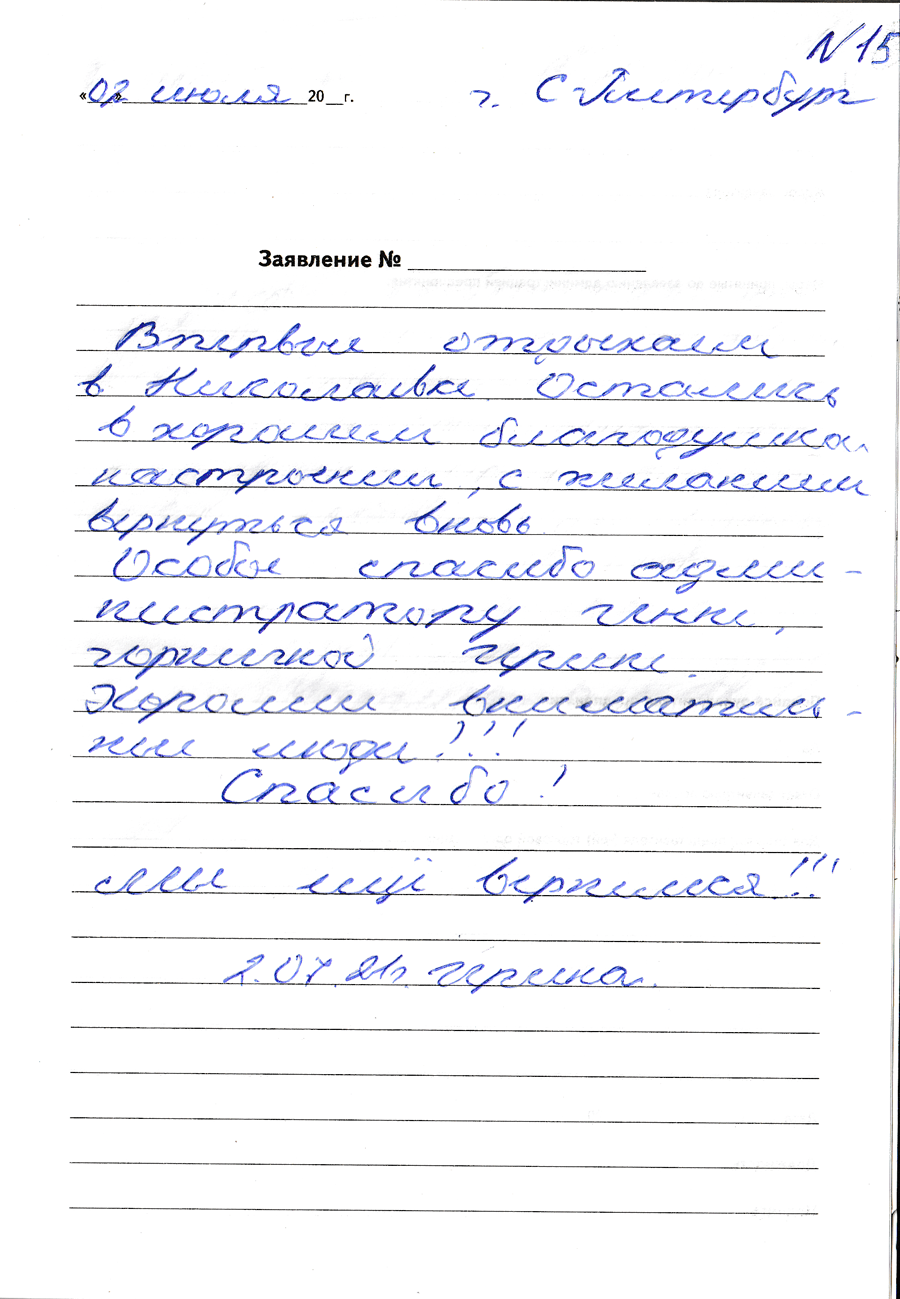 N 15
«02» июля 20__г. г. С-Питербург
Заявление № ____
Впервые отдыхаем
в Николаевке. Остались
в хорошем благодушном
настроении, с желанием
вернуться вновь
Особое спасибо адми-
нистратору Инне,
горничной Ирине.
Хорошии вниматель-
ные люди!!!
Спасибо!
Мы ещё вернемся!!!
2.07.21г. Ирина.